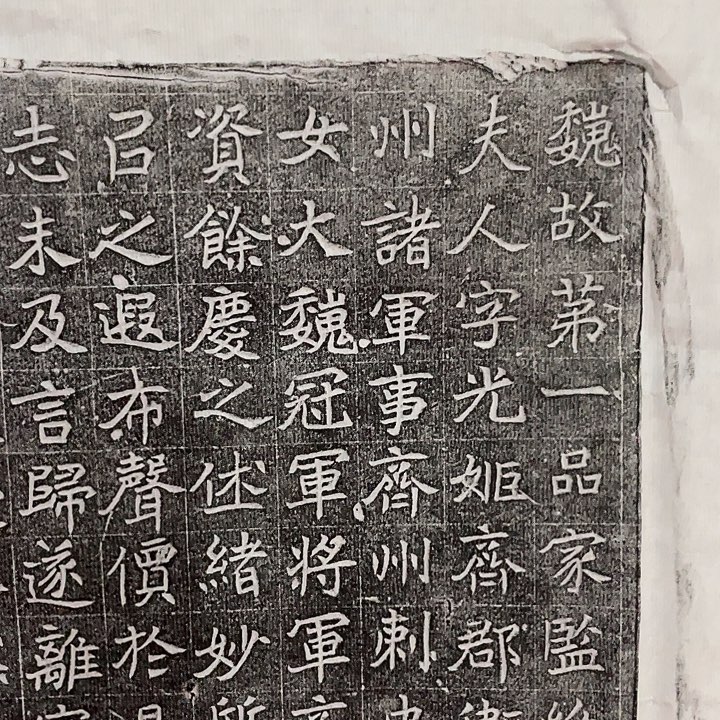 魏故苐一品家監
夫人字光姫齊郡
州諸軍事齊州刺
女大魏冠軍將軍
資餘慶之㐲緒妙
召之遐布聲價於
志未及言歸遂離